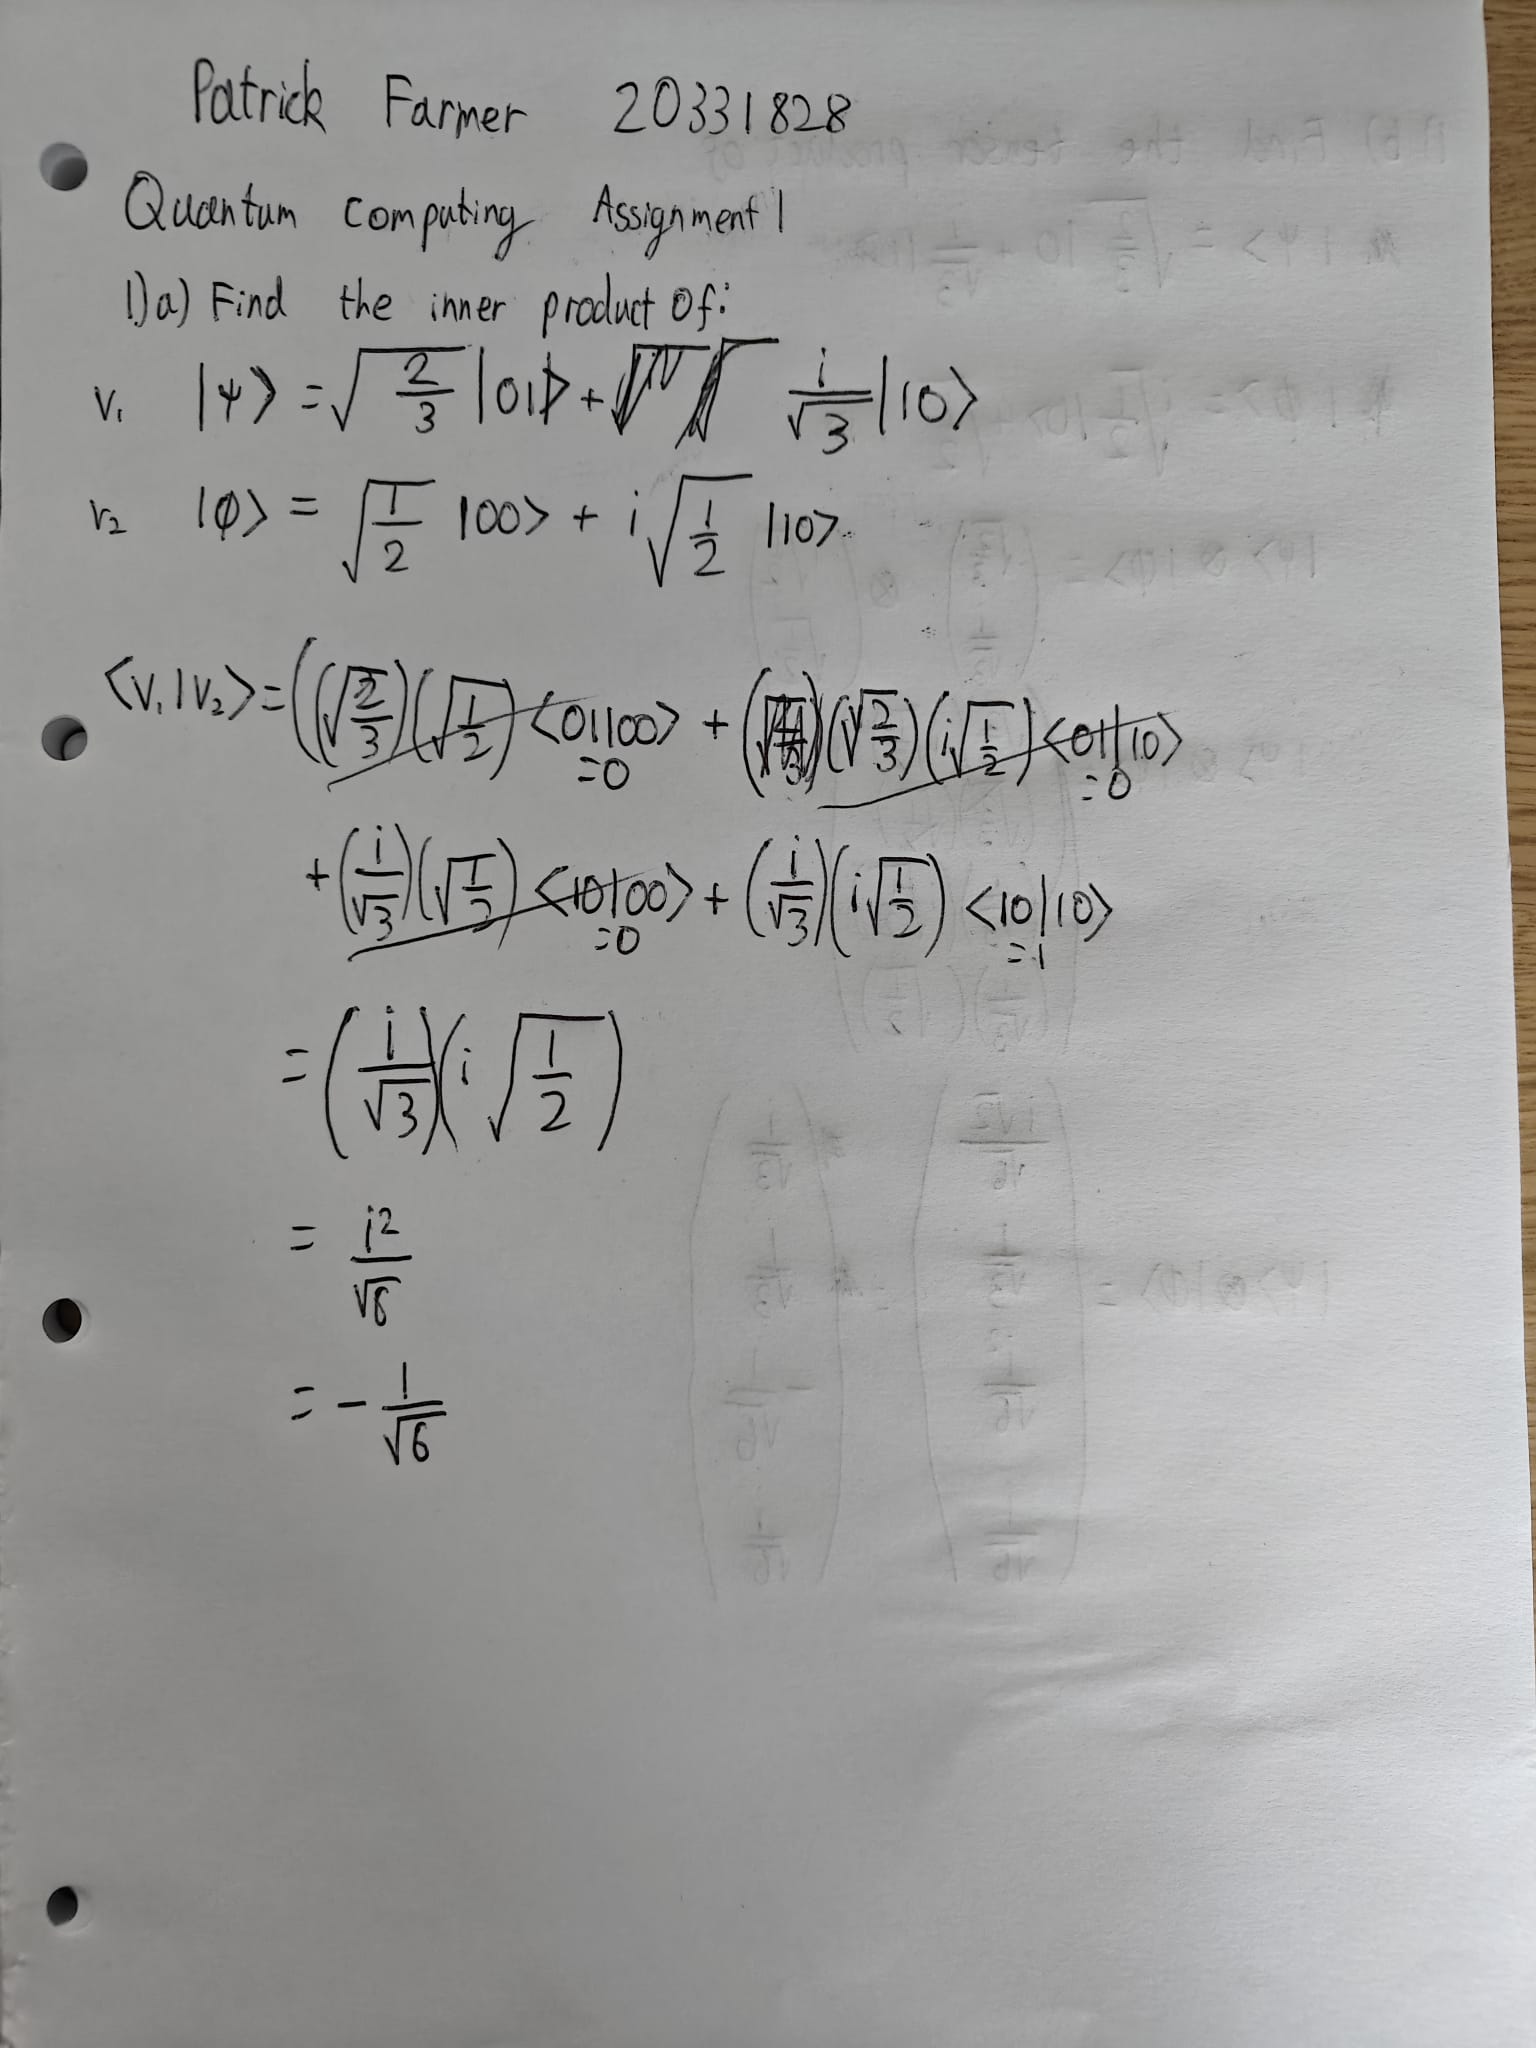 Patrick Farmer 20331828
Quantum computing Assignment 1
1)a) Find the inner product of:
v₁ |ψ> = √(2/3) |01> + i/√3 |10>
v₂ |φ> = √(1/2) |00> + i√(1/2) |10>
<v₁|v₂> = ((√(2/3))(√(1/2)) <01|00> + (√(2/3))(i√(1/2)) <01|10>
=0 =0
+ (i/√3)(√(1/2)) <10|00> + (i/√3)(i√(1/2)) <10|10>
=0 =1
= (i/√3)(i√(1/2))
= i²/√6
= - 1/√6